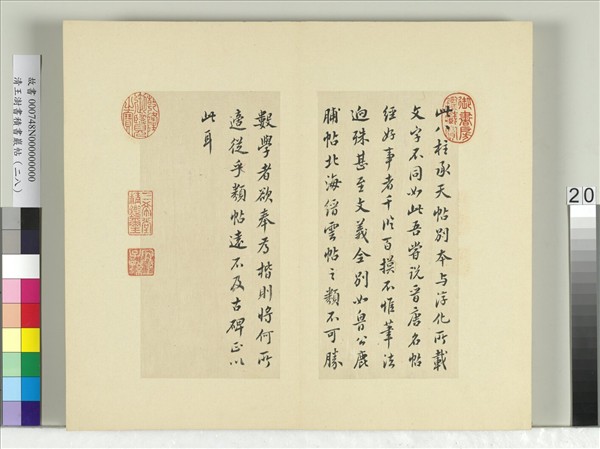 此八柱承天帖別本與淳化所載
文字不同如此吾嘗說晉唐名帖
經好事者千臨百摸不惟筆法
迥殊甚至文義全別如魯公鹿
脯帖北海僧雲帖之類不可勝
數學者欲奉為楷則將何所
適從乎類帖遠不及古碑正以
此耳
故書 000748N000000000
清王澍書積書巖帖(二八)
20